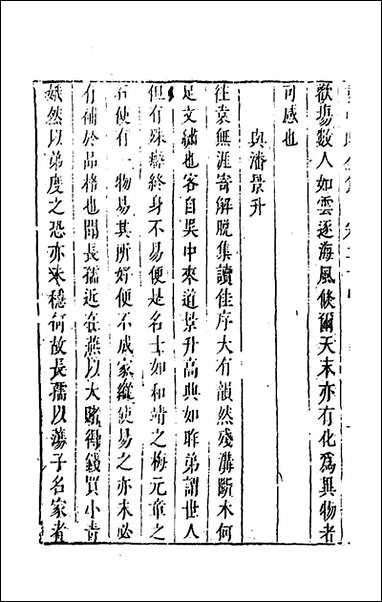 歡場數人如雲逐海風倏爾天末亦有化爲異物者
可感也
與潘景升
往袁無涯寄解脫集讀佳序大有韻然殘溝斷木何
足文繡也客自吳中來道景升高興如昨弟謂世人
但有殊癖終身不易便是名士如和靖之梅元章之
石使有一物易其所好便不成家縱使易之亦未必
有補於品格也聞長孺近在燕以大賭得錢買小青
娥然以弟度之恐亦未穩何故長孺以蕩子名家者